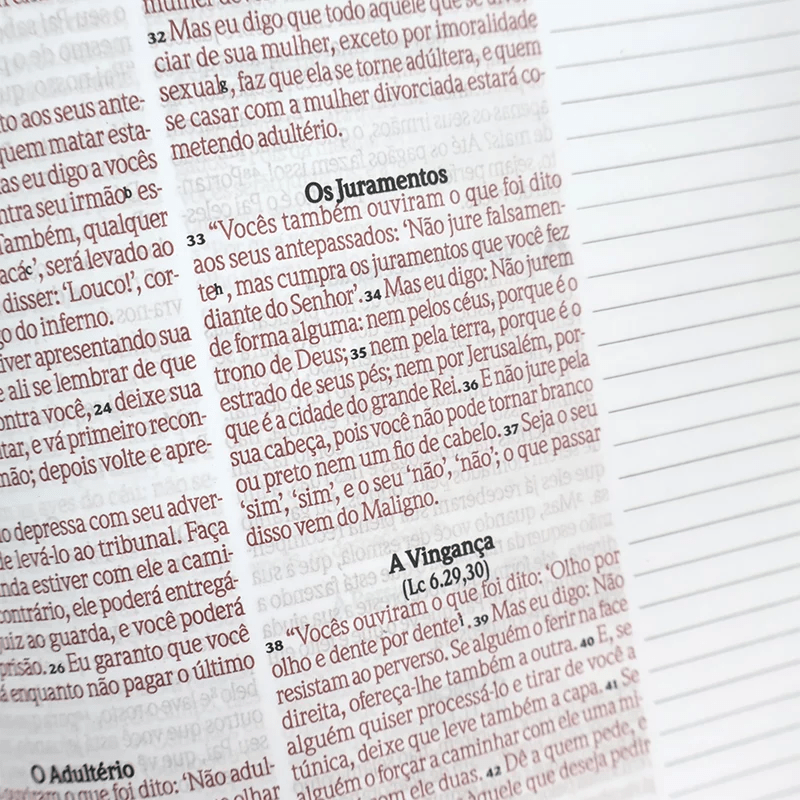 to aos seus ante-
quem matar esta-
as eu digo a vocês
ntra seu irmãob es-
Também, qualquer
acác', será levado ao
disser: 'Louco!', cor-
go do inferno.
iver apresentando sua
e ali se lembrar de que
ontra você, 24 deixe sua
tar, e vá primeiro recon-
mão; depois volte e apre-
o depressa com seu adver-
de levá-lo ao tribunal. Faça
nda estiver com ele a cami-
contrário, ele poderá entregá-
juiz ao guarda, e você poderá
prisão. 26 Eu garanto que você
á enquanto não pagar o último
O Adultério
que foi dito: 'Não adul-
32 Mas eu digo que todo aquele que se divor-
ciar de sua mulher, exceto por imoralidade
sexualg, faz que ela se torne adúltera, e quem
se casar com a mulher divorciada estará co-
metendo adultério.
Os Juramentos
33 "Vocês também ouviram o que foi dito
aos seus antepassados: 'Não jure falsamen-
teh, mas cumpra os juramentos que você fez
diante do Senhor'. 34 Mas eu digo: Não jurem
de forma alguma: nem pelos céus, porque é o
trono de Deus; 35 nem pela terra, porque é o
estrado de seus pés; nem por Jerusalém, por-
que é a cidade do grande Rei. 36 E não jure pela
sua cabeça, pois você não pode tornar branco
ou preto nem um fio de cabelo. 37 Seja o seu
'sim', 'sim', e o seu 'não', 'não'; o que passar
disso vem do Maligno.
A Vingança
(Lc 6.29,30)
38 "Vocês ouviram o que foi dito: 'Olho por
olho e dente por dente'i. 39 Mas eu digo: Não
resistam ao perverso. Se alguém o ferir na face
direita, ofereça-lhe também a outra. 40 E, se
alguém quiser processá-lo e tirar de você a
túnica, deixe que leve também a capa. 41 Se
alguém o forçar a caminhar com ele uma mi-
com ele duas. 42 Dê a quem pede, e
àquele que deseja pedir